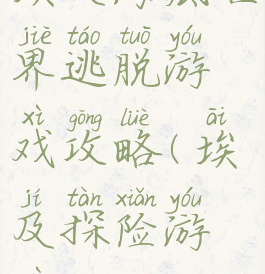 jiè táo tuō yóu
界逃脱游
xì gōng lüè āi
戏攻略(埃
jí tàn xiǎn yóu
及探险游